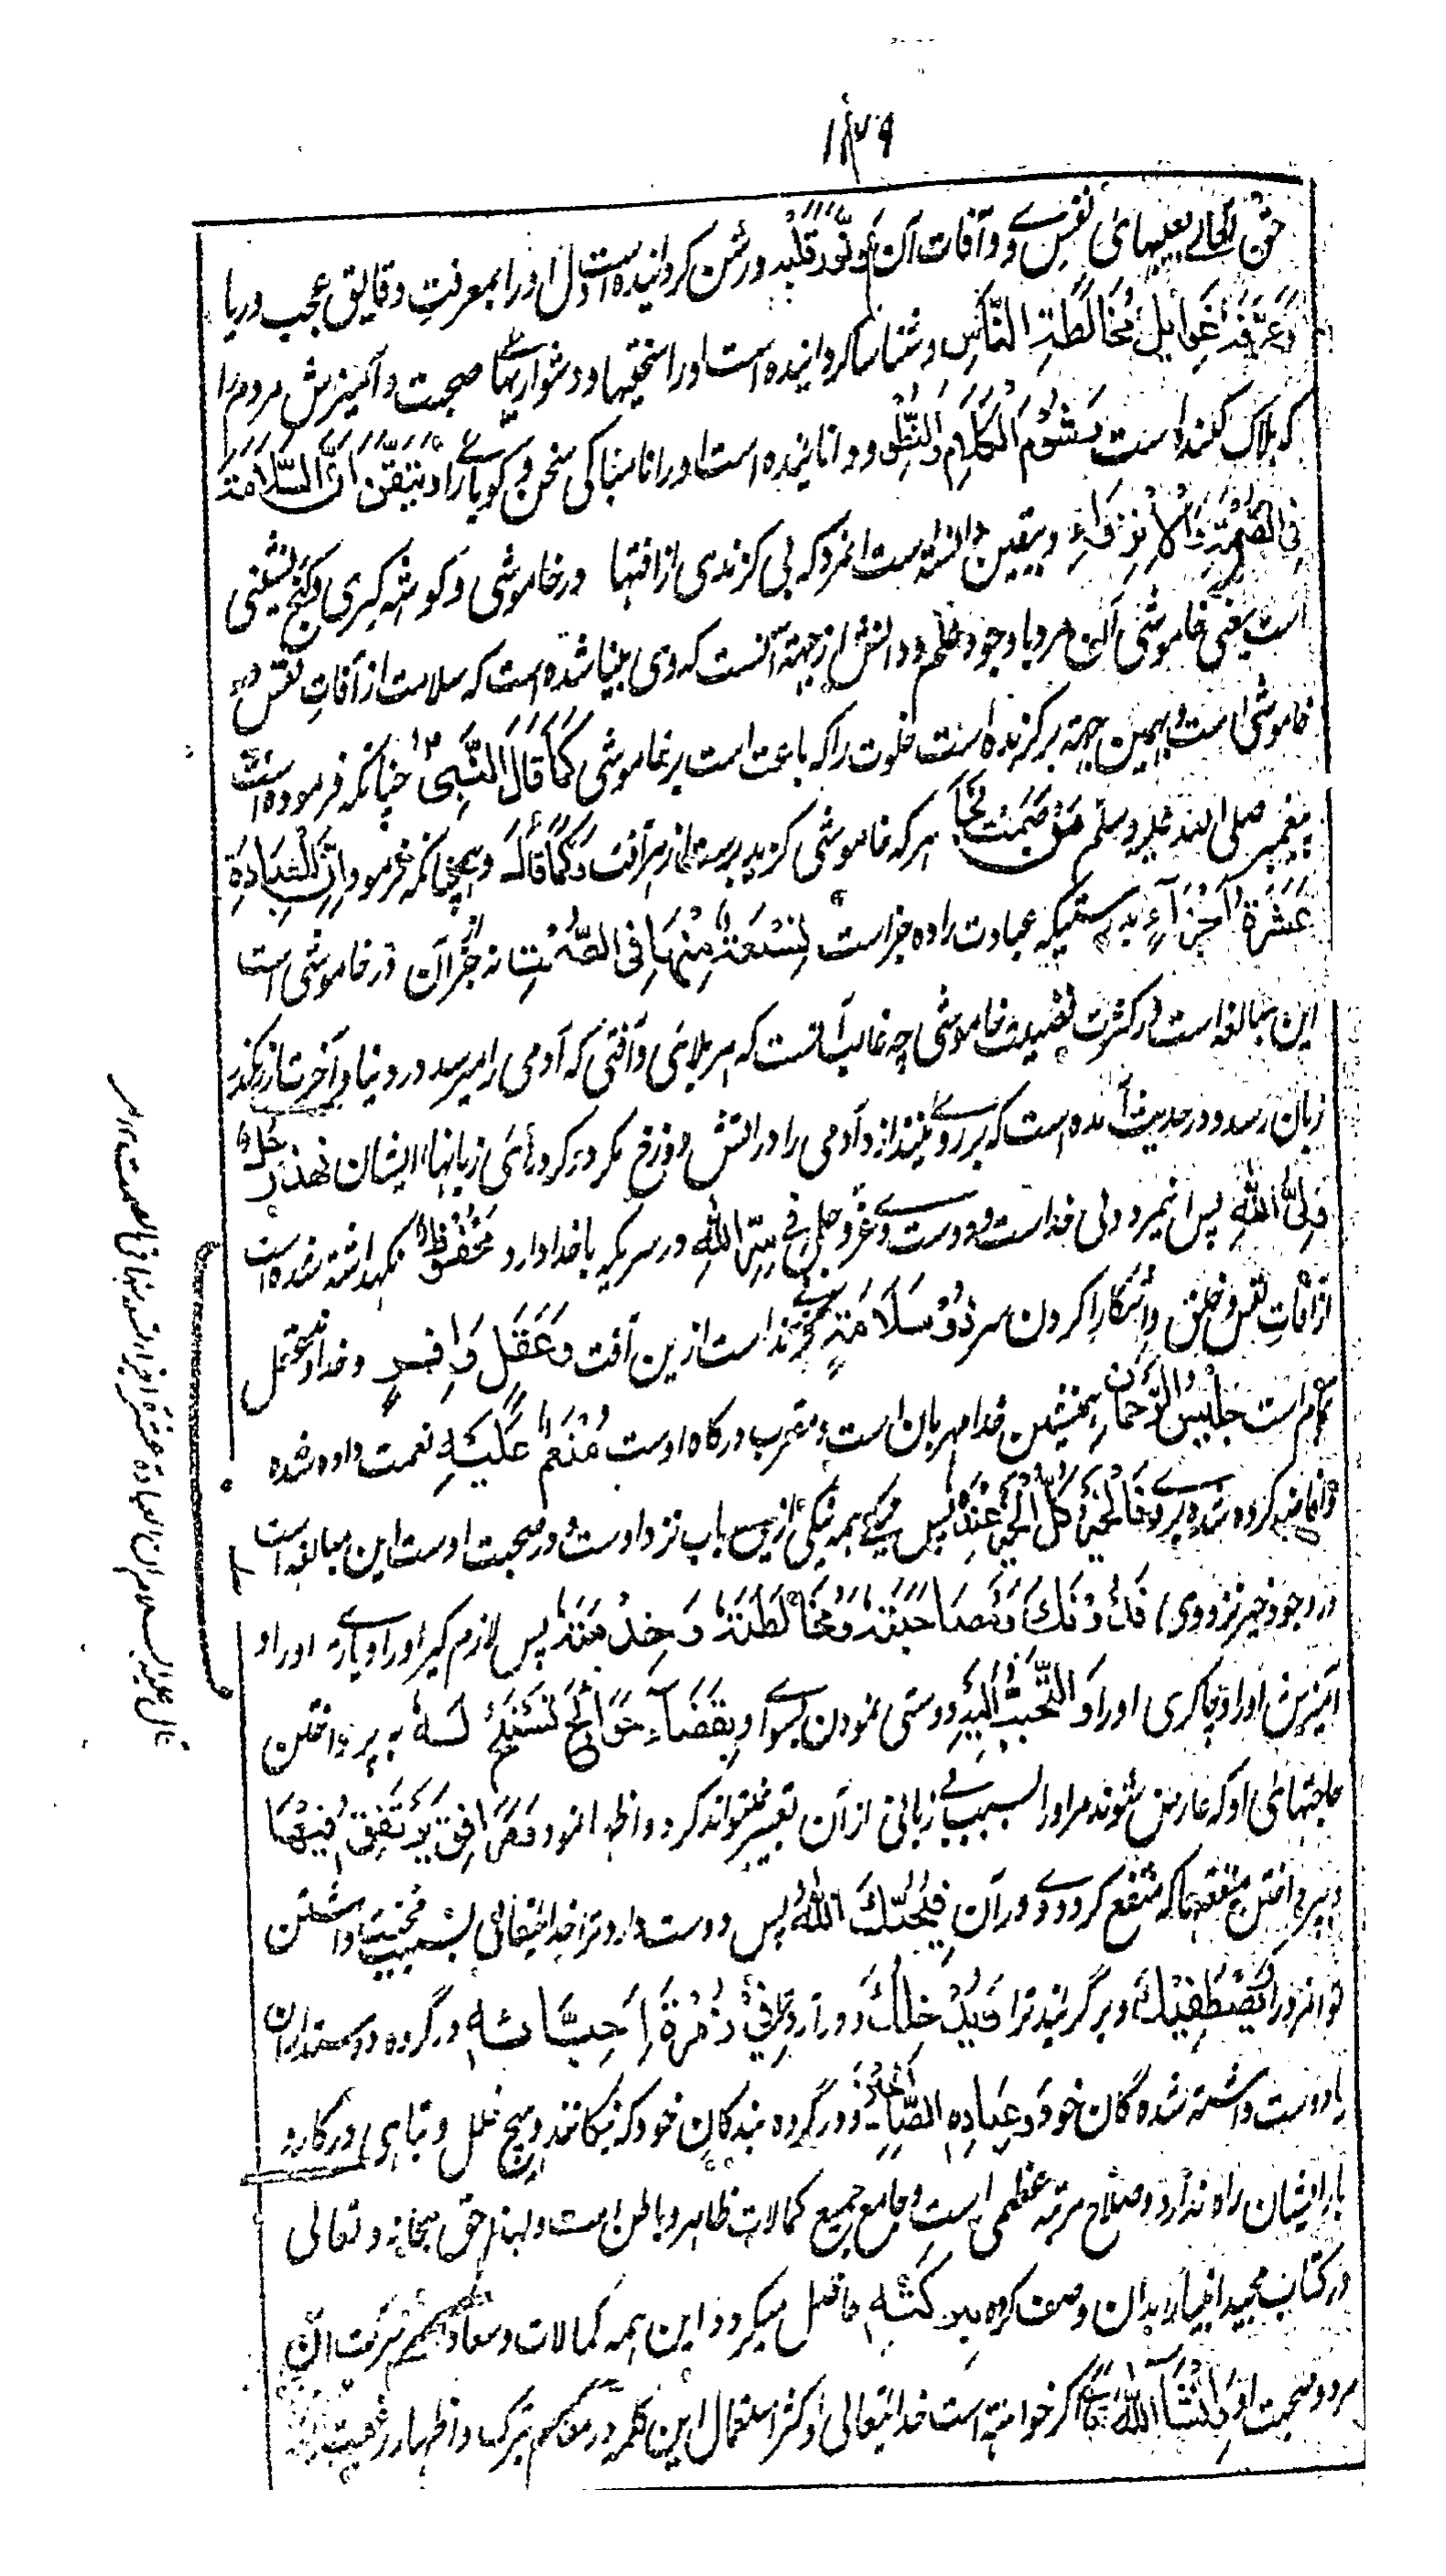 ۱۲۹
حق تعالے بعیبهای نفس وے و آفات آن وَنَوَّرَ قَلْبَهٗ و روشن کردانیده است دل او را بمعرفت دقایق عجب و ریا
وَعَرَّفَهٗ غَوَایِلَ مُخَالَطَةِ النَّاسِ و شناسا کردانیده است او را سختیها و دشواریهاے صحبت و آمیزش مردم را
که هلاک کننده است وَشُؤْمَ الْکَلَامِ وَالنُّطْقِ و دانانیده است او را ناسبناکی سخن و کویائے را وَتَیَقَّنَ اَنَّ السَّلَامَةَ
فِی الصَّمْتِ وَالْاِنْزِوَاءِ و بیقین دانسته است انمرد که بی کزندی از افتها در خاموشی و کوشه کیری و کنج نشینی
است یعنی خاموشی آن مرد با وجود علم و دانش از جهته آنست که وی بینا شده است که سلامت از آفات نفس در
خاموشی است و بهمین جهته برکزیده است خلوت را که باعث است بر خاموشی کَمَا قَالَ النَّبِیُّ چنانکه فرموده است
پیغمبر صلی الله علیه وسلم مَنْ صَمَتَ نَجَا هر که خاموشی کزید برست از هر آفت وَکَمَا قَالَ و همچنانکه فرمود اِنَّ الْعِبَادَةَ
عَشَرَةُ اَجْزَاءٍ بدرستیکه عبادت را ده جزاست تِسْعَةٌ مِنْهَا فِی الصَّمْتِ نه جز از آن در خاموشی است
این مبالغه است در کثرت فضیلت خاموشی چه غالب آنست که هر بلائی و آفتی که آدمی را میرسد در دنیا و آخرت از رهکذر
زبان رسد و در حدیث آمده است که بر روے نیندازد آدمی را در اتش دوزخ مکر درکردهائی زبانهاء ایشان فَهٰذَا رَجُلٌ
وَلِیُّ اللّٰهِ پس اینمرد ولی خداست و دوست وے عز و جل فِی سِتْرِ اللّٰهِ در سریکه با خدا دارد مَحْفُوْظٌ نکهداشته شده است
از آفات نفس و خلق و آشکارا کردن سر ذُوْ سَلَامَةٍ بی کزند است ازین آفت وَعَقْلٍ وَافِرٍ و خداوند عقل
تمام است جَلِیْسُ الرَّحْمَانِ همنشین خدا مهربان است و مقرب درکاه اوست مُنْعَمٌ عَلَیْهِ نعمت داده شده
و انعام کرده شده بر وے فَالْخَیْرُ کُلُّ الْخَیْرِ عِنْدَهٗ پس نیکے همه نیکی ازین باب نزد اوست و در صحبت اوست این مبالغه است
در وجود خیر نزد وی) فَدُوْنَكَ وَمُصَاحَبَتَهٗ وَمُخَالَطَتَهٗ وَخِدْمَتَهٗ پس لازم کیر او را و یارے او را و
آمیزش او را و چاکری او را وَالتَّحَبُّبَ اِلَیْهِ و دوستی نمودن بسوے او بِقَضَاءِ حَوَائِجَ تَسْنَحُ لَهٗ به پرداختن
حاجتهای او که عارض شوند مر او را بسبب بے زبانی از آن تعبیر نتواند کرد و اظهار نمود وَمَرَافِقَ یَرْتَفِقُ فِیْهَا
و بپرداختن منفعتها که منتفع کردد وے در آن فَیُحِبُّكَ اللّٰهُ پس دوست دارد ترا خدایتعالی بسبب محبت داشتن
تو انمرد را وَیَصْطَفِیْكَ و بر گزیند ترا وَیُدْخِلُكَ و در آرد ترا فِی زُمْرَةِ اَحِبَّائِهٖ در گروه دوستداران
یا دوست داشته شده گان خود وَعِبَادِهِ الصَّالِحِیْنَ و در گروه بندکان خود که نیکانند و هیچ خلل و تباهی در کار
با ایشان راه ندارد و صلاح مرتبه عظمی است و جامع جمیع کمالات ظاهر و باطن است و لهذا حق سبحانه و تعالی
در کتاب مجید انبیا را بدان وصف کرده بِبَرَکَتِهٖ حاصل میکردد این همه کمالات و سعادتها ببرکت آن
مرد و صحبت او اِنْشَاءَ اللّٰهُ تَعَالٰی اگر خواسته است خدایتعالی و کثر استعمال این کلمه در مقام تبرک و اظهار رغبت